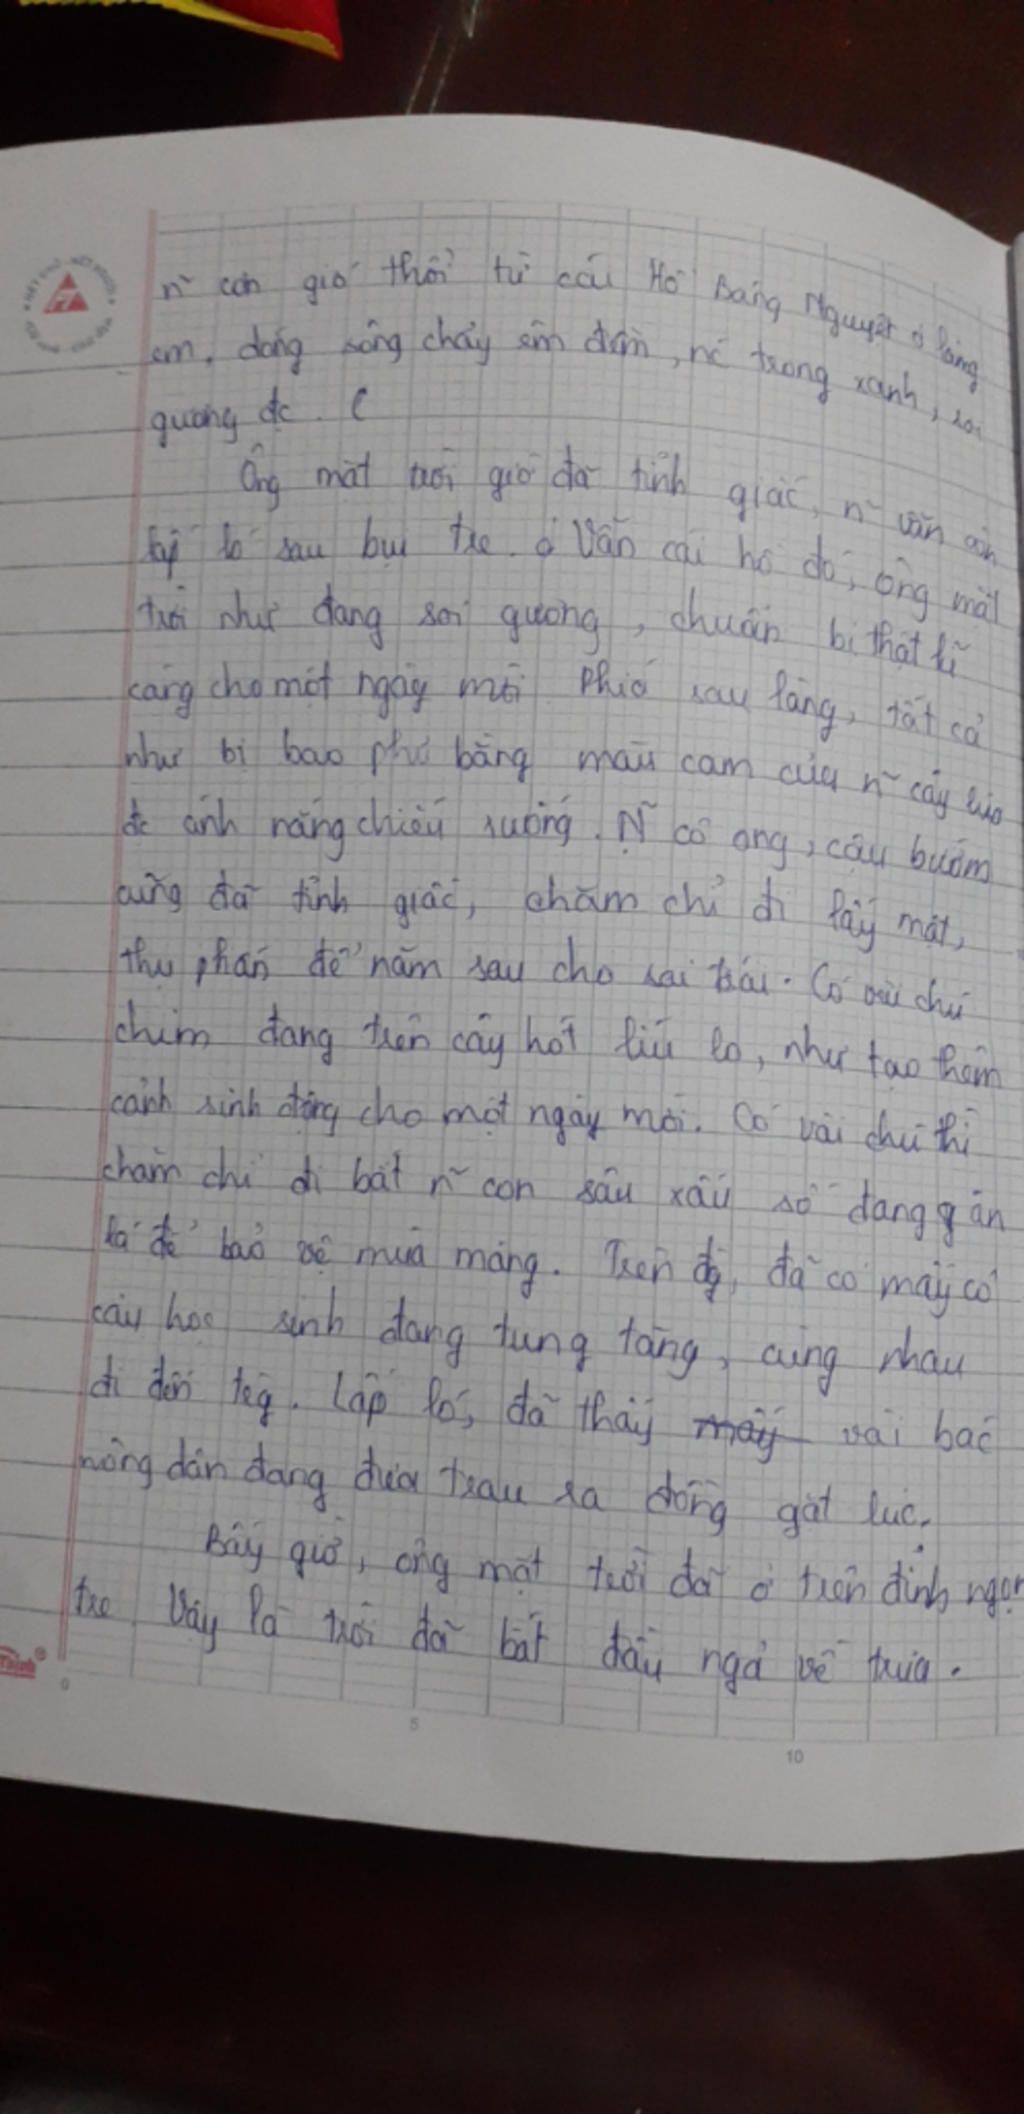 n~ cơn gió thổi từ cái Hồ Bán Nguyệt ở làng
em, dòng sông chảy êm đềm, nc trong xanh, soi
gương đc. (
Ông mặt trời giờ đã tỉnh giấc, n~ vẫn còn
ló sau bụi tre. ở Vẫn cái hồ đó, ông mặt
trời như đang soi gương, chuẩn bị thật kĩ
càng cho một ngày mới. Phía sau làng, tất cả
như bị bao phủ bằng màu cam của n~ cây lúa
đc ánh nắng chiếu xuống. N~ cô ong, cậu bướm
cũng đã tỉnh giấc, chăm chỉ đi lấy mật,
thụ phấn để năm sau cho sai trái. Có vài chú
chim đang trên cây hót líu lo, như tạo thêm
cảnh sinh động cho một ngày mới. Có vài chú thì
chăm chỉ đi bắt n~ con sâu xấu số đang gặn
lá để bảo vệ mùa màng. Trên đg, đã có mấy cô
cậu học sinh đang tung tăng, cùng nhau
đi đến trg. Lấp ló, đã thấy mấy vài bác
nông dân đang đưa trâu ra đồng gặt lúc.
Bây giờ, ông mặt trời đã ở trên đỉnh ngọn
tre. Vậy là trời đã bắt đầu ngả về trưa.
5
10